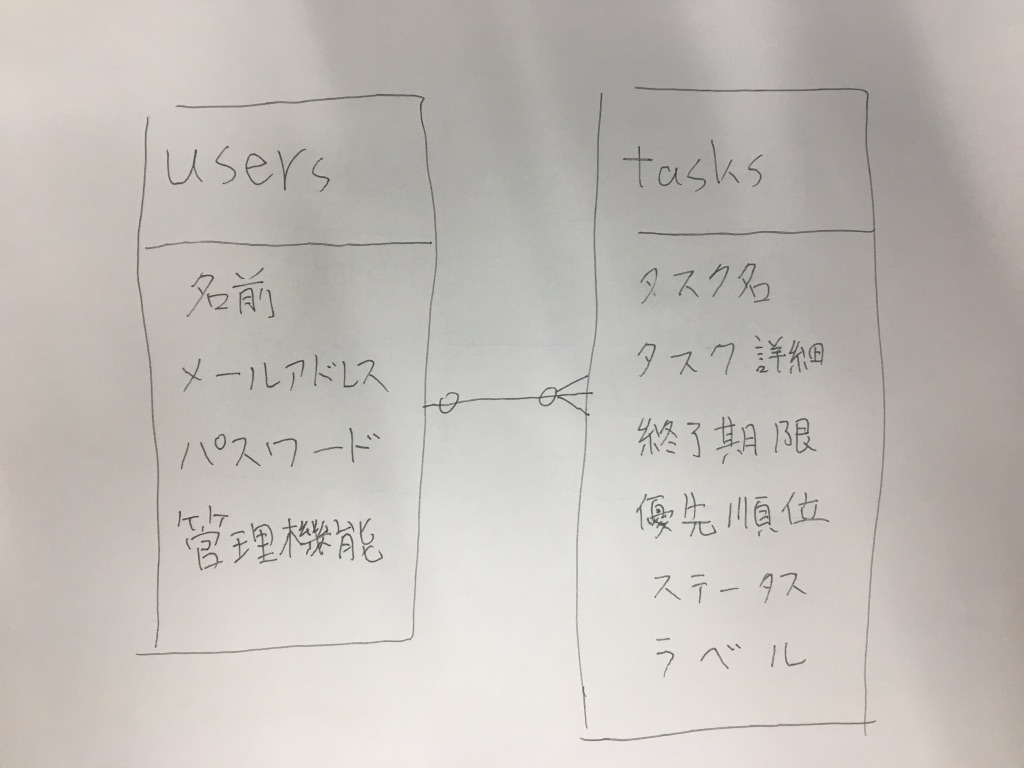 users
名前
メールアドレス
パスワード
管理機能
tasks
タスク名
タスク詳細
終了期限
優先順位
ステータス
ラベル